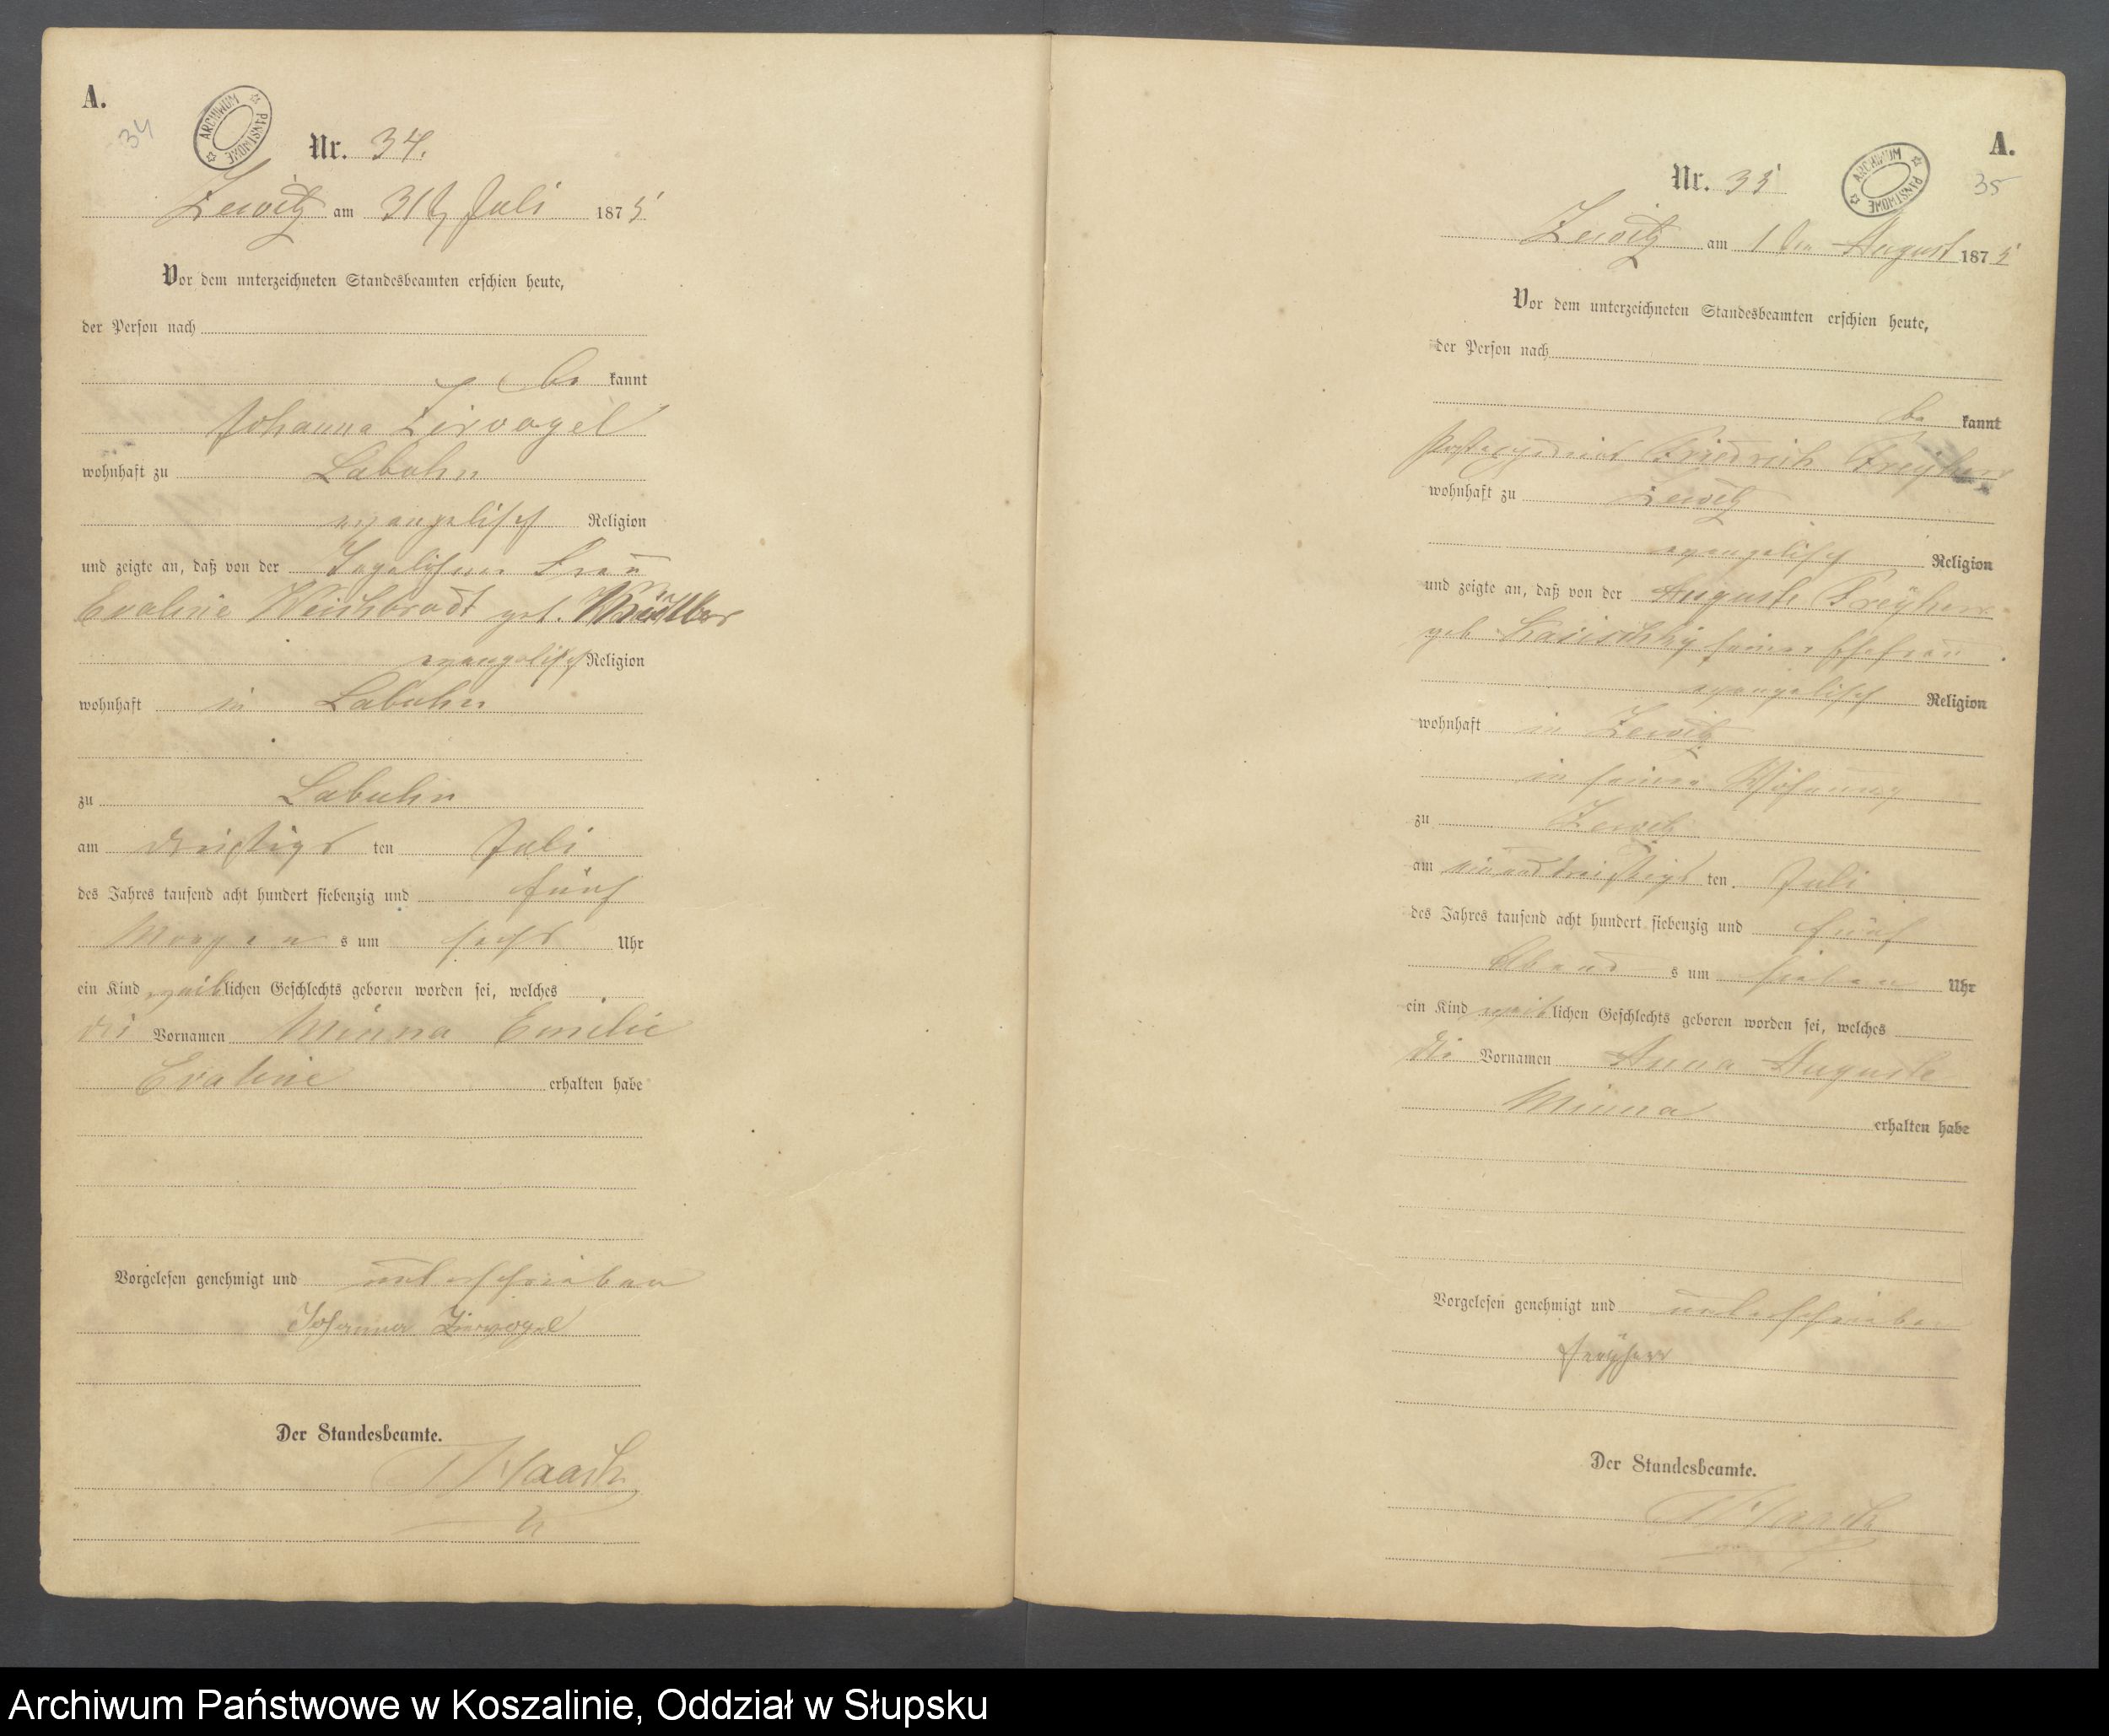 A.
34
ARCHIWUM PAŃSTWOWE
Nr. 34.
Zewitz am 31ten Juli 1875
Vor dem unterzeichneten Standesbeamten erschien heute,
der Person nach
be kannt
Johanna Zirvogel
wohnhaft zu Labuhn
evangelisch Religion
und zeigte an, daß von der Tagelöhner Frau
Evaline Weichbrodt geb.
evangelisch Religion
wohnhaft in Labuhn
zu Labuhn
am dreißigst ten Juli
des Jahres tausend acht hundert siebenzig und fünf
Morgen s um sechs Uhr
ein Kind weiblichen Geschlechts geboren worden sei, welches
die Vornamen Minna Emilie
Evaline erhalten habe
Vorgelesen genehmigt und unterschrieben
Johanna Zirvogel
Der Standesbeamte.
A.
35
ARCHIWUM PAŃSTWOWE
Nr. 35
Zewitz am 1ten August 1875
Vor dem unterzeichneten Standesbeamten erschien heute,
der Person nach
be kannt
Postexpedient Friedrich Freyherr
wohnhaft zu Zewitz
evangelisch Religion
und zeigte an, daß von der Auguste Freyherr
geb. seiner Ehefrau
evangelisch Religion
wohnhaft in Zewitz
in seiner Wohnung
zu Zewitz
am einunddreißigst ten Juli
des Jahres tausend acht hundert siebenzig und fünf
Abend s um sieben Uhr
ein Kind weiblichen Geschlechts geboren worden sei, welches
die Vornamen Anna Auguste
Minna erhalten habe
Vorgelesen genehmigt und unterschrieben
Freyherr
Der Standesbeamte.
Archiwum Państwowe w Koszalinie, Oddział w Słupsku